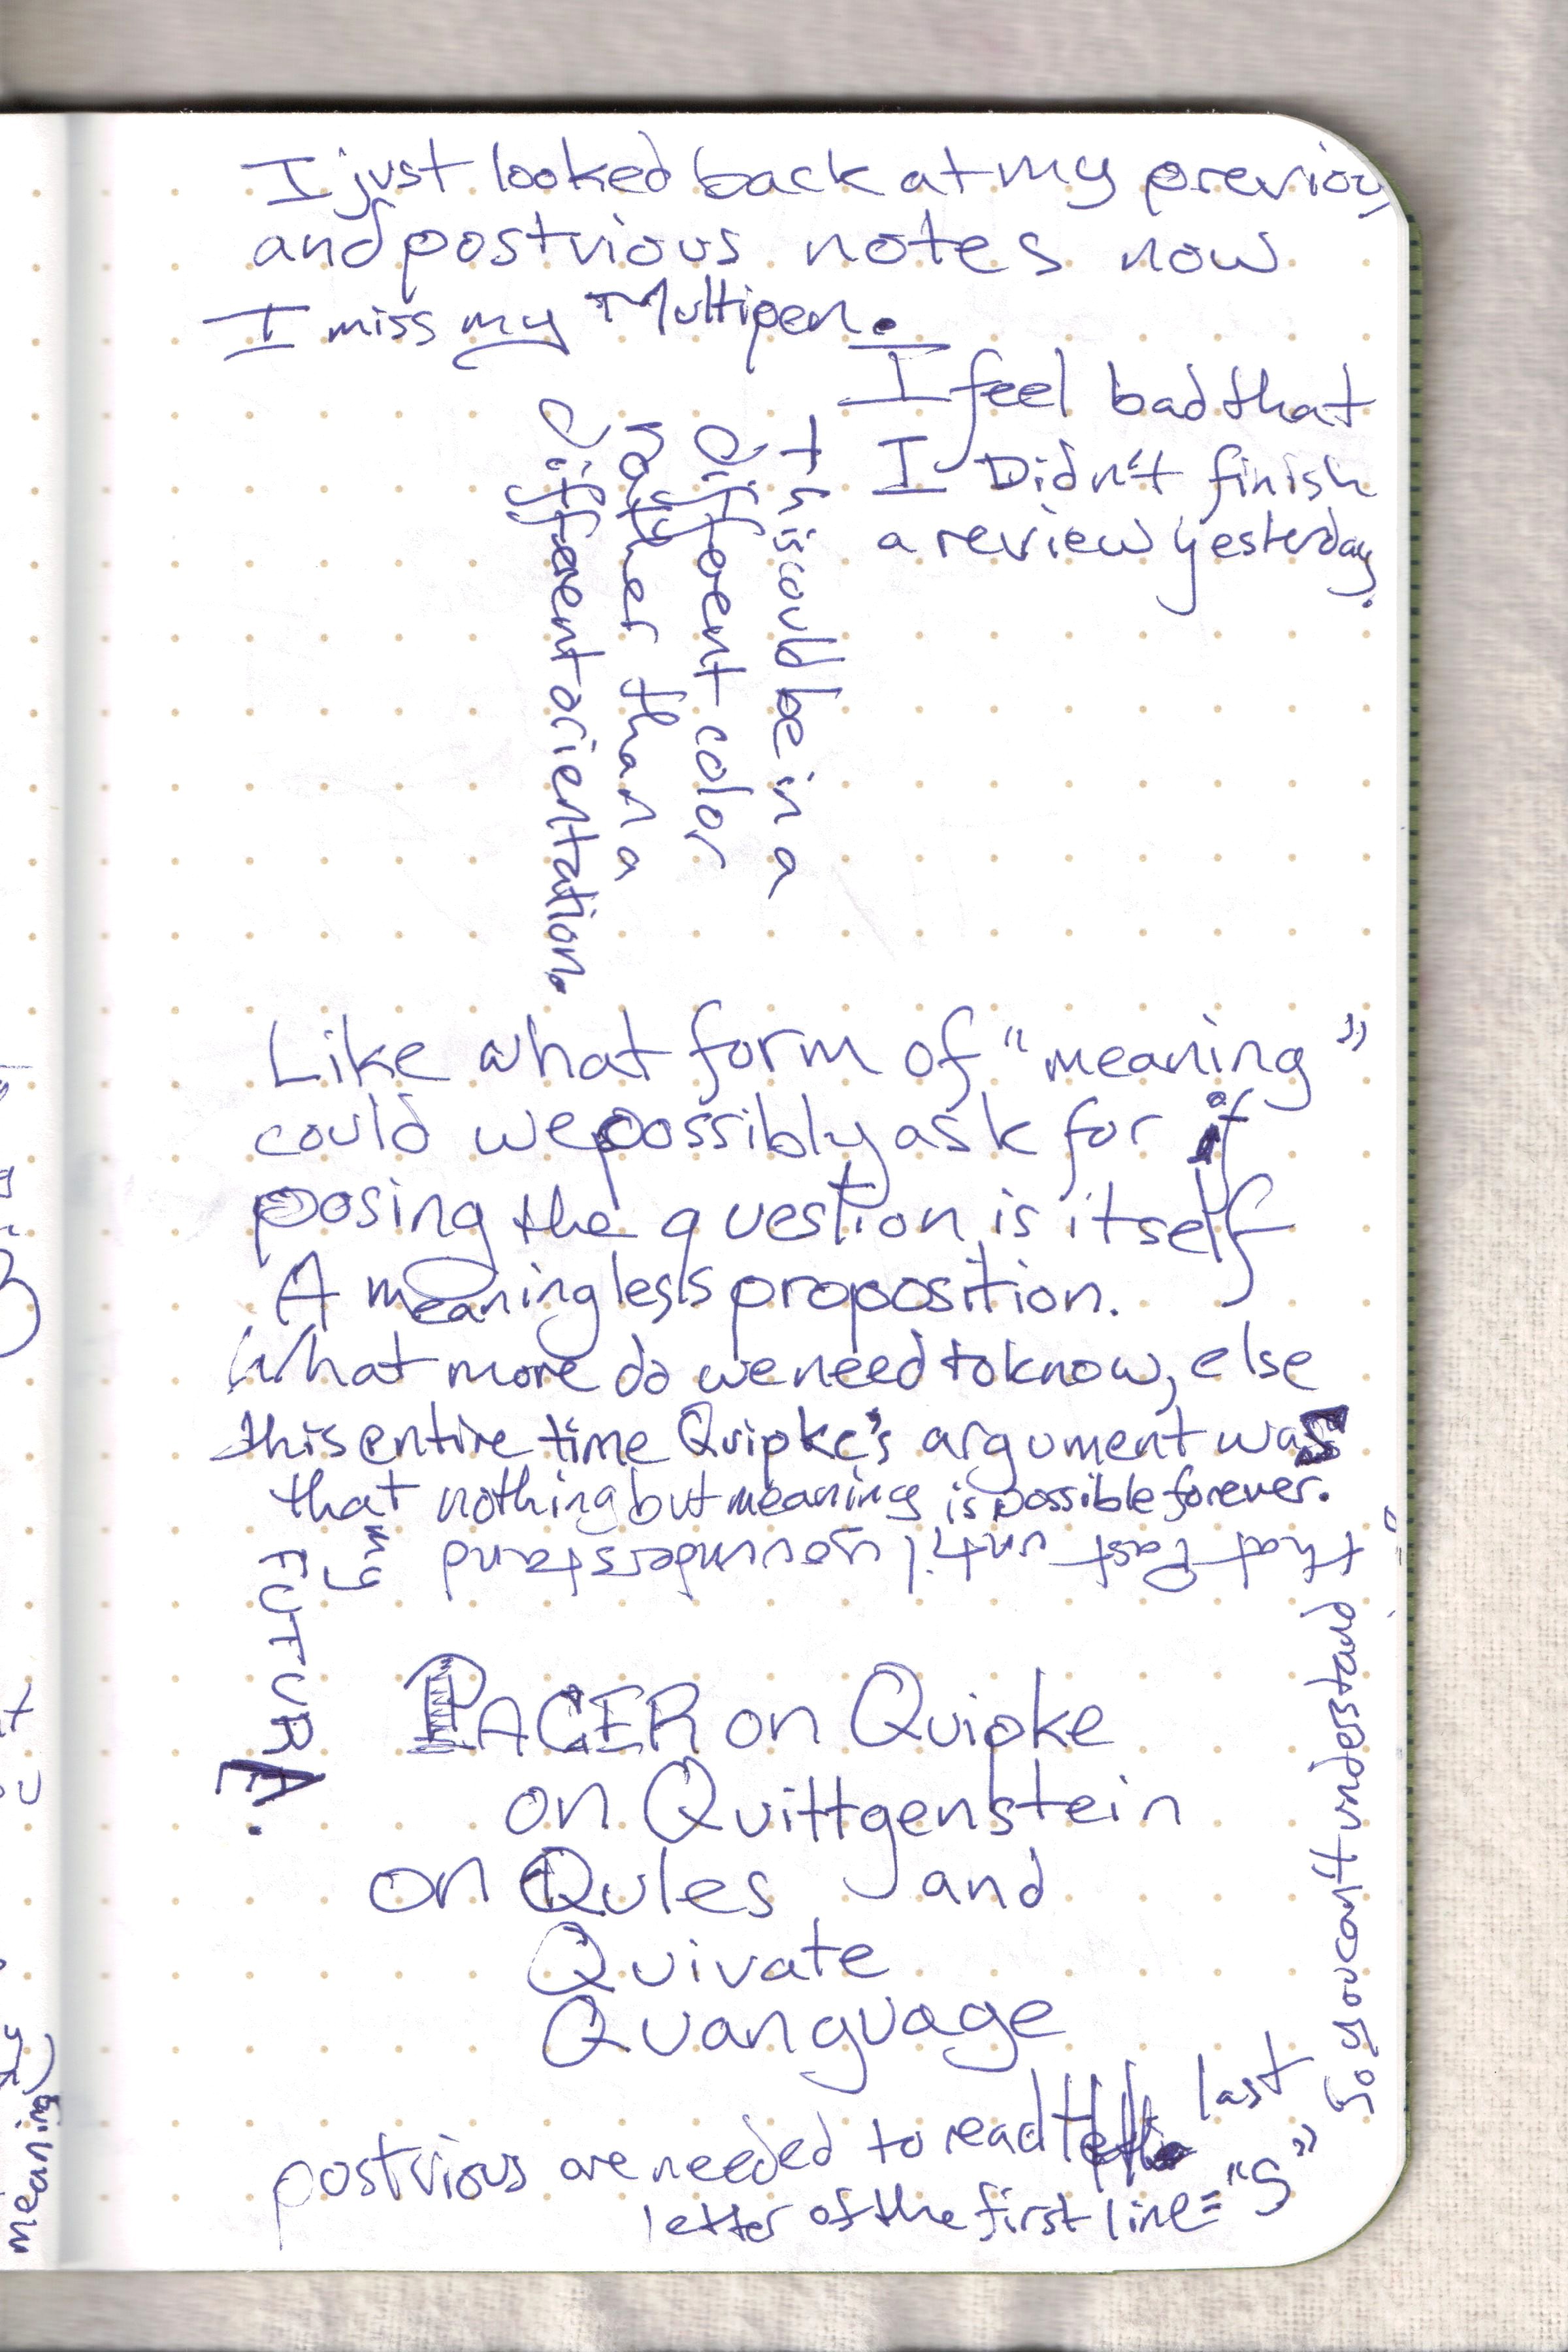 I just looked back at my previou
and postvious notes now
I miss my Multipen.
I feel bad that
I Didn't finish
a review yesterday.
this could be in a
different color
rather than a
different orientation.
Like what form of "meaning"
could we possibly ask for if
posing the question is itself
A meaningless proposition.
What more do we need to know, else
this entire time Quipke's argument was
that nothing but meaning is possible forever.
that Past until you understand
my
FUTURA.
PACER on Quipke
on Quittgenstein
on Qules and
Quivate
Quanguage
So you can't understand
postvious are needed to read the last
letter of the first line = "S"
meaning